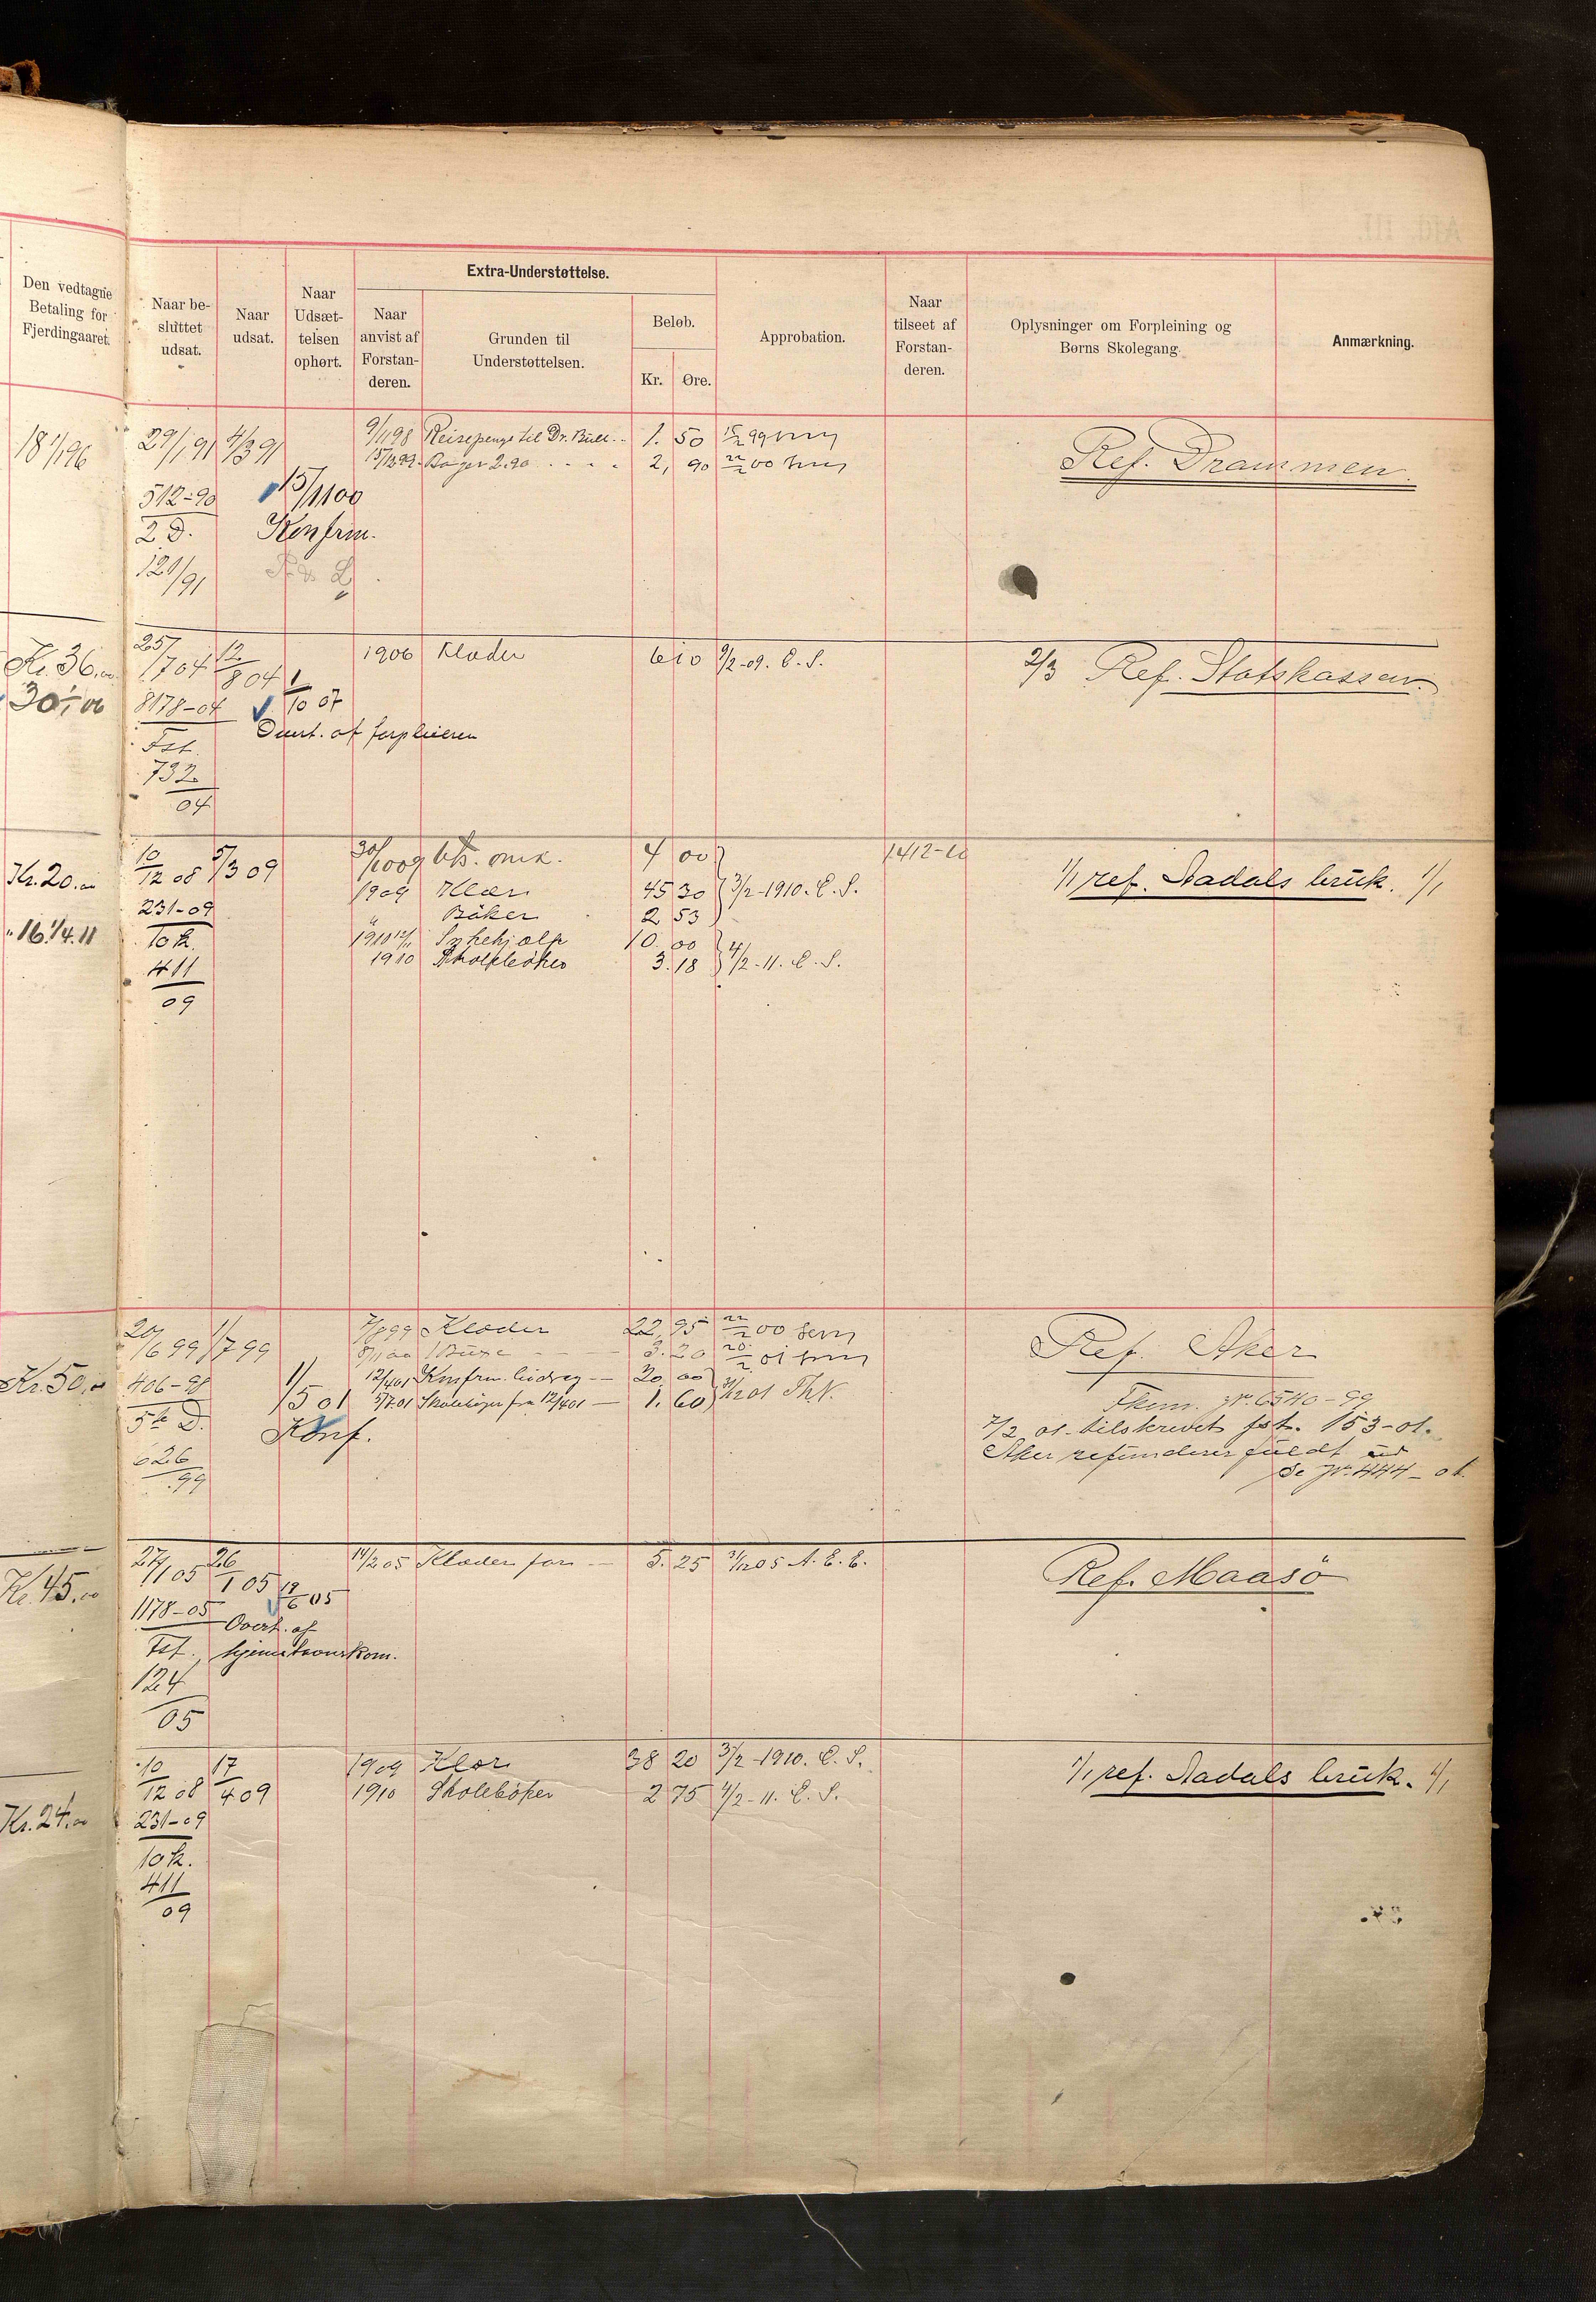 Extra-Understøttelse.
Den vedtagne
Betaling for
Fjerdingaaret.
Naar be-
sluttet
udsat.
Naar
udsat.
Naar
Udsæt-
telsen
ophørt.
Naar
anvist af
Forstan-
deren.
Grunden til
Understøttelsen.
Beløb.
Kr. Øre.
Approbation.
Naar
tilseet af
Forstan-
deren.
Oplysninger om Forpleining og
Børns Skolegang.
Anmærkning.
18 1/1 96 29/1 91 4/3 91 9/11 98 Reisepenge til Dr. Bull 1. 50 15/2 99
15/12 99 Bøger 2.90 . . . . 2, 90 00
Ref. Drammen.
512-90 15/11 00
2 D. Konfrm.
121/91
Kr. 36.00 25/7 04 12/8 04 1906 Klæder 6 10 9/2-09. E. S. 2/3 Ref. Statskassen.
30,- 00 8178-04 1/10 07
Overt. af forpleieren
Fst.
732
04
Kr. 20.00 10/12 08 5/3 09 30/10 09 omk. 4 00 1412-10
1909 Klær 45 30 3/2-1910. E. S. 1/1 ref. Aadals bruk. 1/1
231-09 " Bøker 2 53
16. 1/4. 11 10 k. 1910 Syhehjælp 10. 00
411 1910 Skolebøker 3. 18 4/2-11. E. S.
09
20/6 99 1/7 99 7/8 99 Klæder 22, 95 00
8/11 00 1 Buxe 3. 20 01
Ref. Aker
Kr. 50.00 406-98 1/5 01 12/4 01 Konfrm. bidrag — 20, 00
5/7 01 Skolebøger fra 12/4 01 — 1. 60 01 Th. N.
5te D. Konf.
626
99
Fkom. Jr. 6540-99
7/2 01 tilskrevet fst. 153-01.
Aker refunderer fuldt ud
Se Jr. 444-01
Kr. 45.00 27/1 05 26/1 05 14/2 05 Klæder for — 5. 25 31/12 05 A. E. E. Ref. Maasö
19/6 05
1178-05 Overt. af
Fst. hjemstavnskom.
124
05
10/12 08 17/4 09 1909 Klær 38 20 3/2-1910. E. S. 1/1 ref. Aadals bruk. 1/1
Kr. 24.00 231-09 1910 Skolebøker 2 75 4/2-11. E. S.
10 k.
411
09